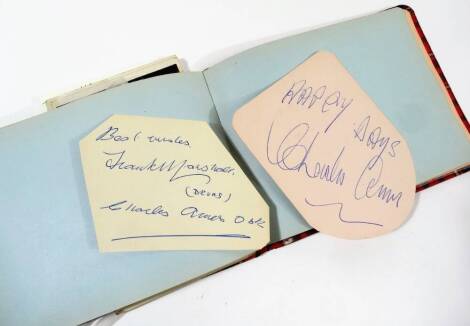 Best wishes
Frank Marshall.
(DRUMS)
Charles Amer
HAPPY
DAYS
Charles Amer